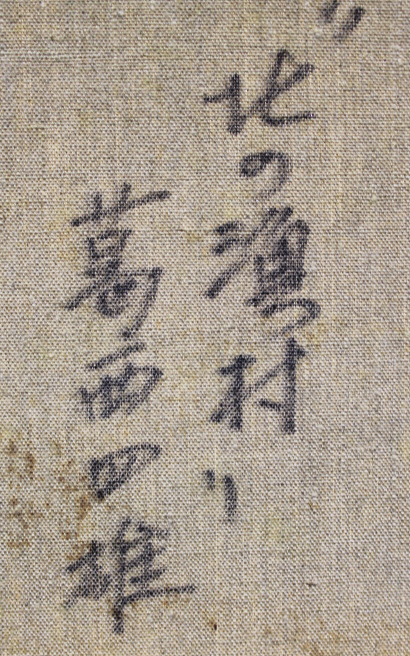 〃北の漁村〃
葛西四雄